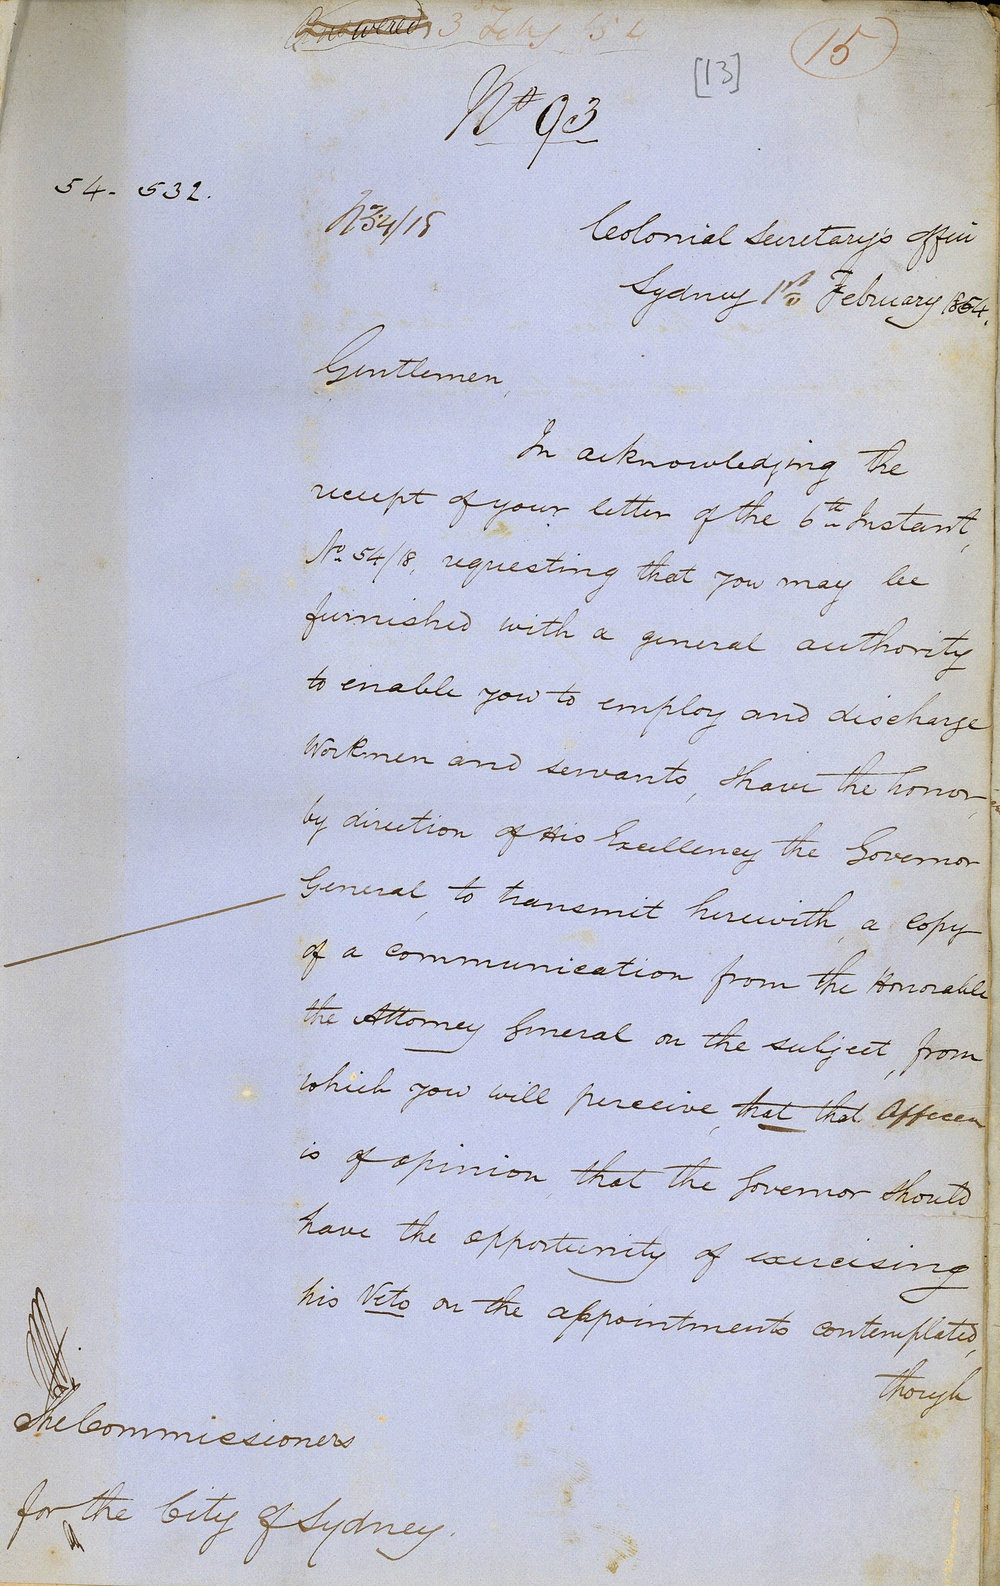 Answered 3 Feby 54
15
[13]
No 93
54-532.
No 54/18
Colonial Secretary's Office
Sydney 1st February 1854.
Gentlemen,
In acknowledging the
receipt of your letter of the 6th Instant,
No 54/8, requesting that you may be
furnished with a general authority
to enable you to employ and discharge
Workmen and servants, I have the honor,
by direction of His Excellency the Governor
General, to transmit herewith, a copy
of a communication from the Honorable
the Attorney General on the subject, from
which you will perceive, that that Officer
is of opinion, that the Governor should
have the opportunity of exercising
his Veto on the appointments contemplated,
though
The Commissioners
for the City of Sydney.